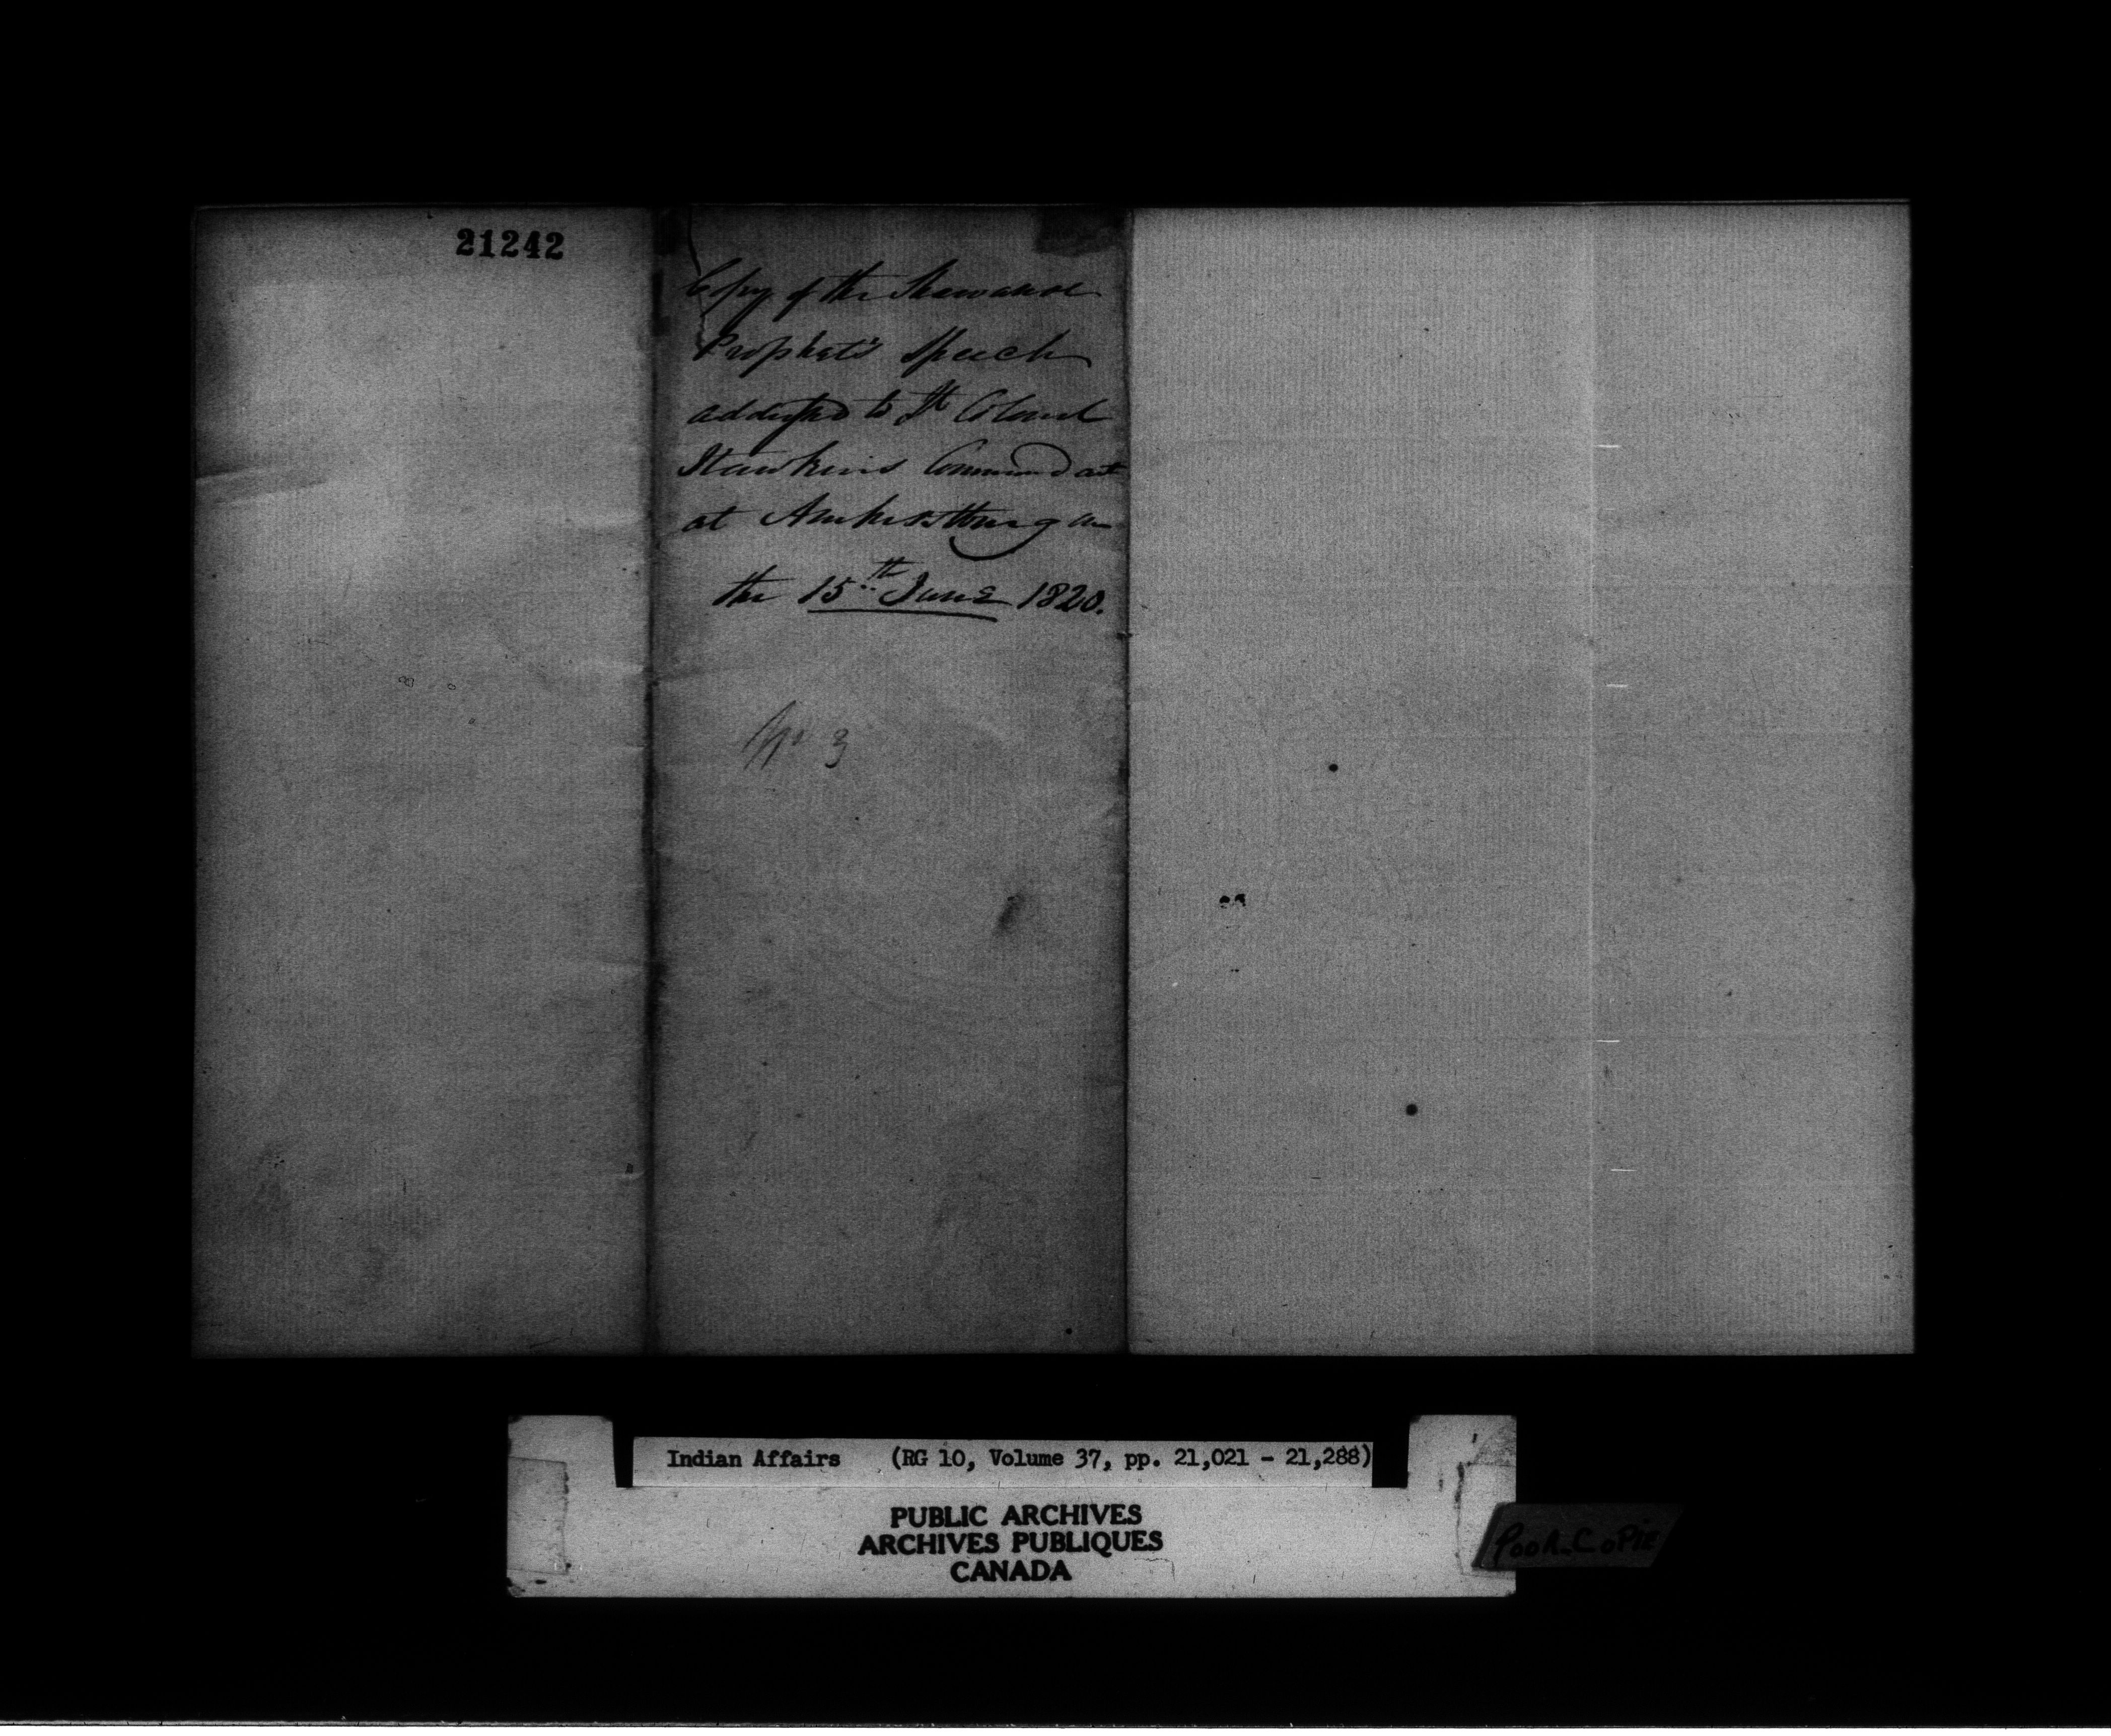 21242
Copy of the Shawanoe
Prophet's Speech
addressed to Lt Colonel
Hawkins Commandant
at Amherstburg on
the 15th June 1820.
No 3
Indian Affairs (RG 10, Volume 37, pp. 21,021 - 21,288)
PUBLIC ARCHIVES
ARCHIVES PUBLIQUES
CANADA
POOR COPIE